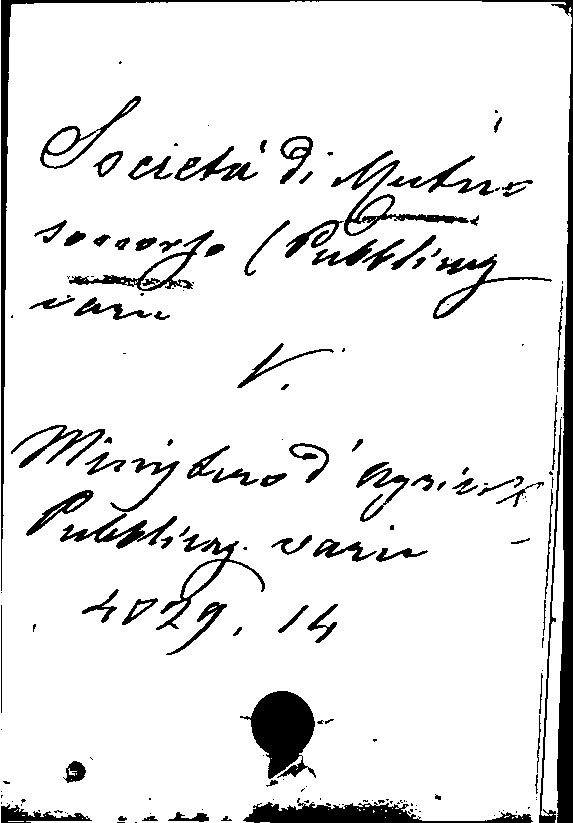 Società di Mutuo
soccorso (Pubblicaz
varie
V.
Ministero d'Agricolt
Pubblicaz. varie
4029.14